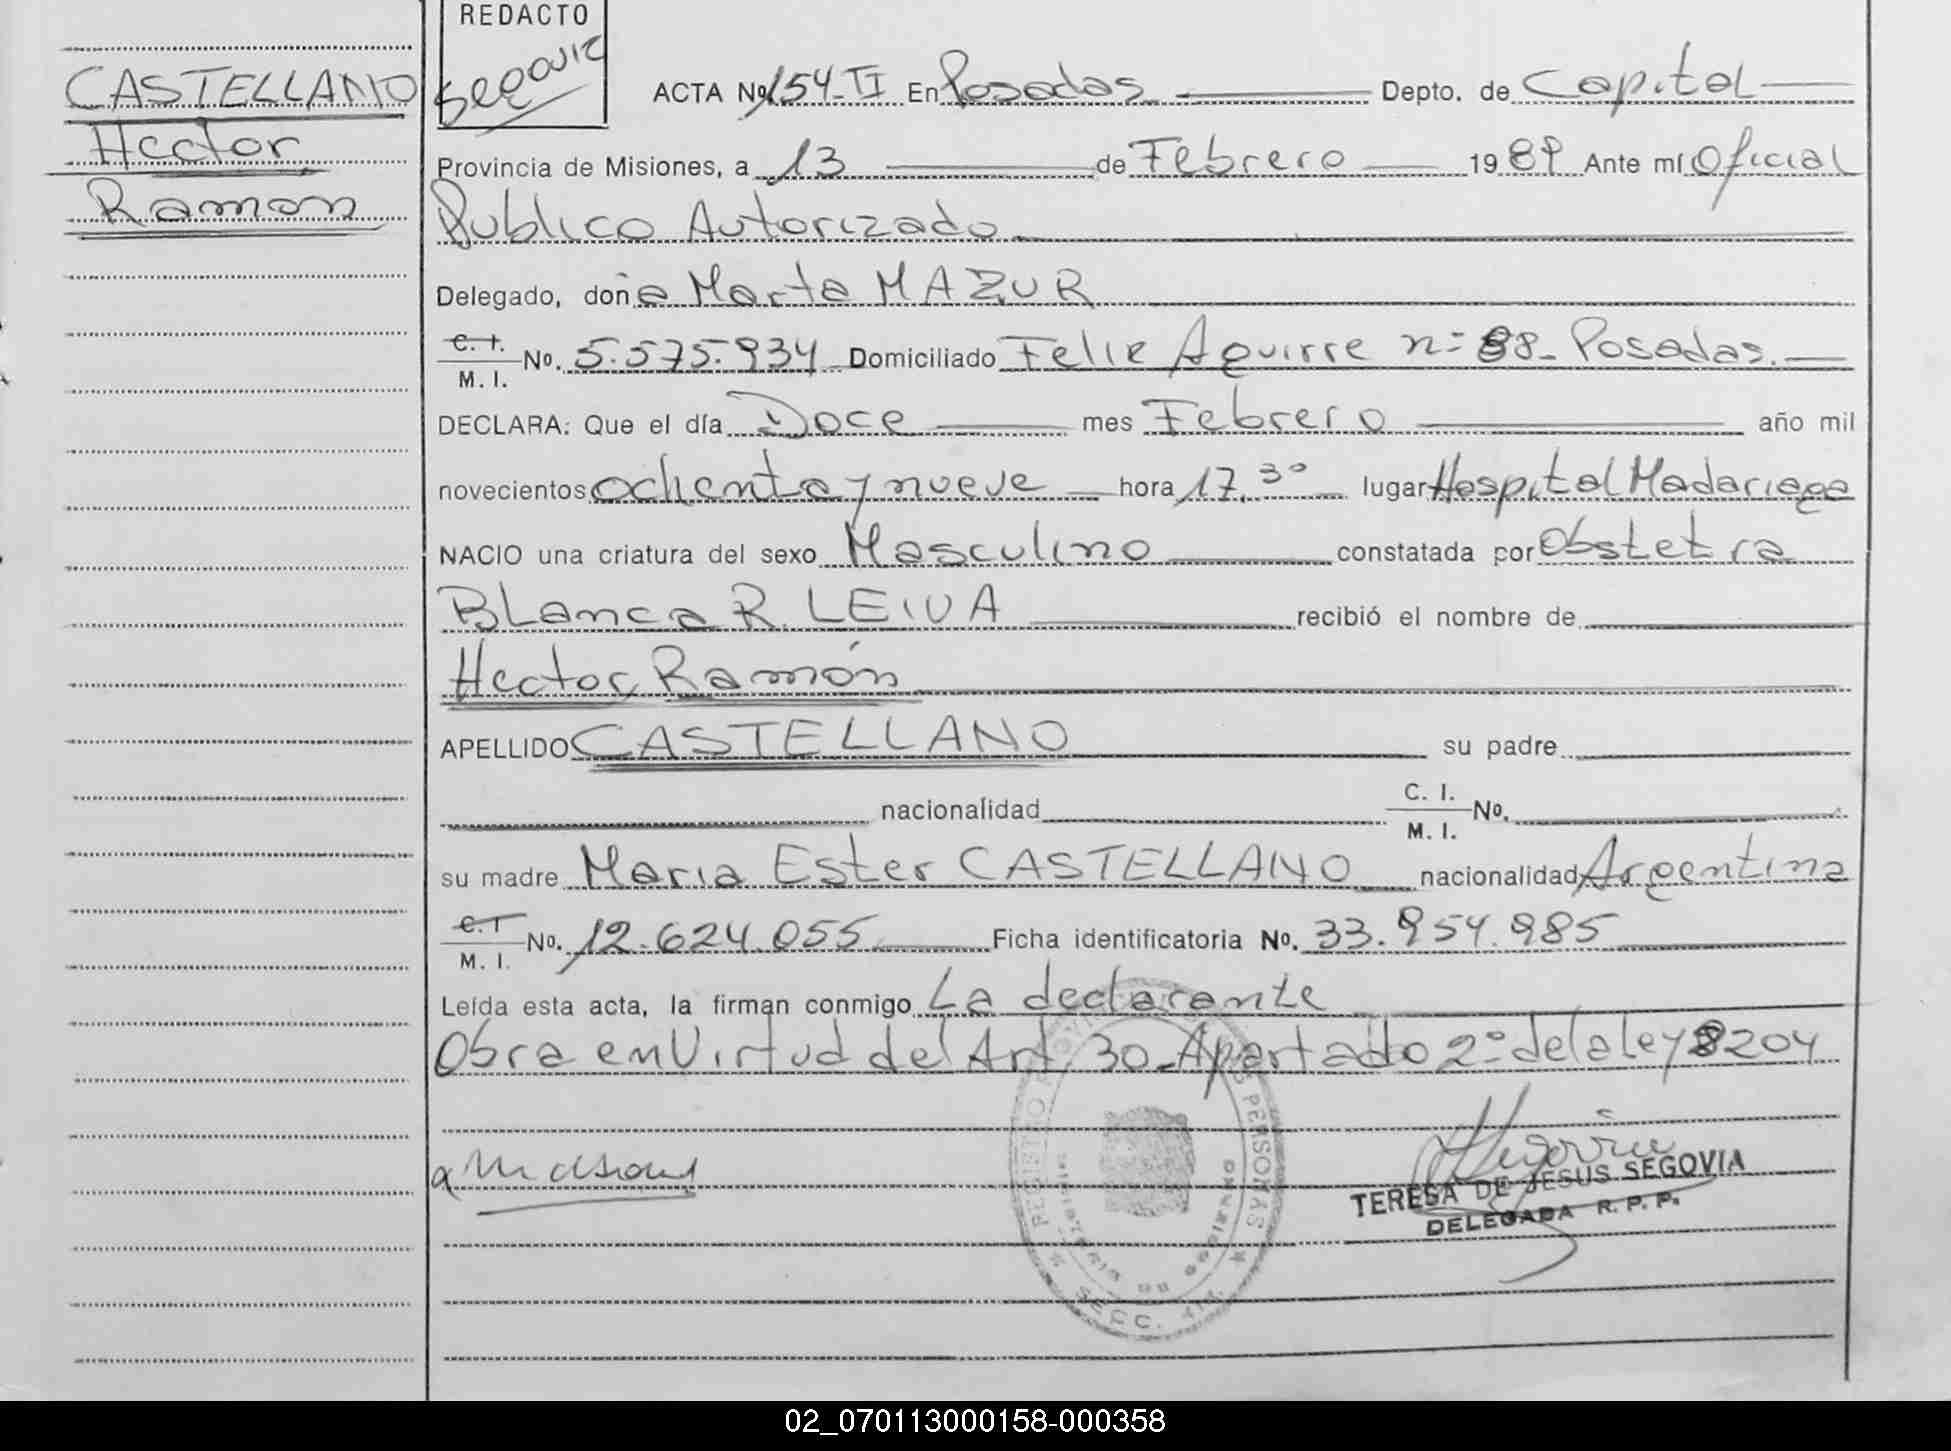 CASTELLANO
Hector
Ramon
REDACTO
Segovia
ACTA No 154-TI En Posadas Depto. de Capital
Provincia de Misiones, a 13 de Febrero 1989 Ante mí Oficial
Publico Autorizado
Delegado, doña Marta MAZUR
C. I.
M. I. No. 5.575.934 Domiciliado Felix Aguirre nº 88 - Posadas.
DECLARA: Que el día Doce mes Febrero año mil
novecientos ochenta y nueve hora 17,30 lugar Hospital Madariaga
NACIO una criatura del sexo Masculino constatada por Obstetra
Blanca R. LEIVA recibió el nombre de
Hector Ramón
APELLIDO CASTELLANO su padre
nacionalidad C. I.
M. I. No.
su madre Maria Ester CASTELLANO nacionalidad Argentina
C. I
M. I. No. 12.624.055 Ficha identificatoria No. 33.954.985
Leída esta acta, la firman conmigo La declarante
Obra en Virtud del Art 30 - Apartado 2º de la ley 8204
TERESA DE JESUS SEGOVIA
DELEGADA R. P. P.
REGISTRO PERSONAS
SECC.
02_070113000158-000358